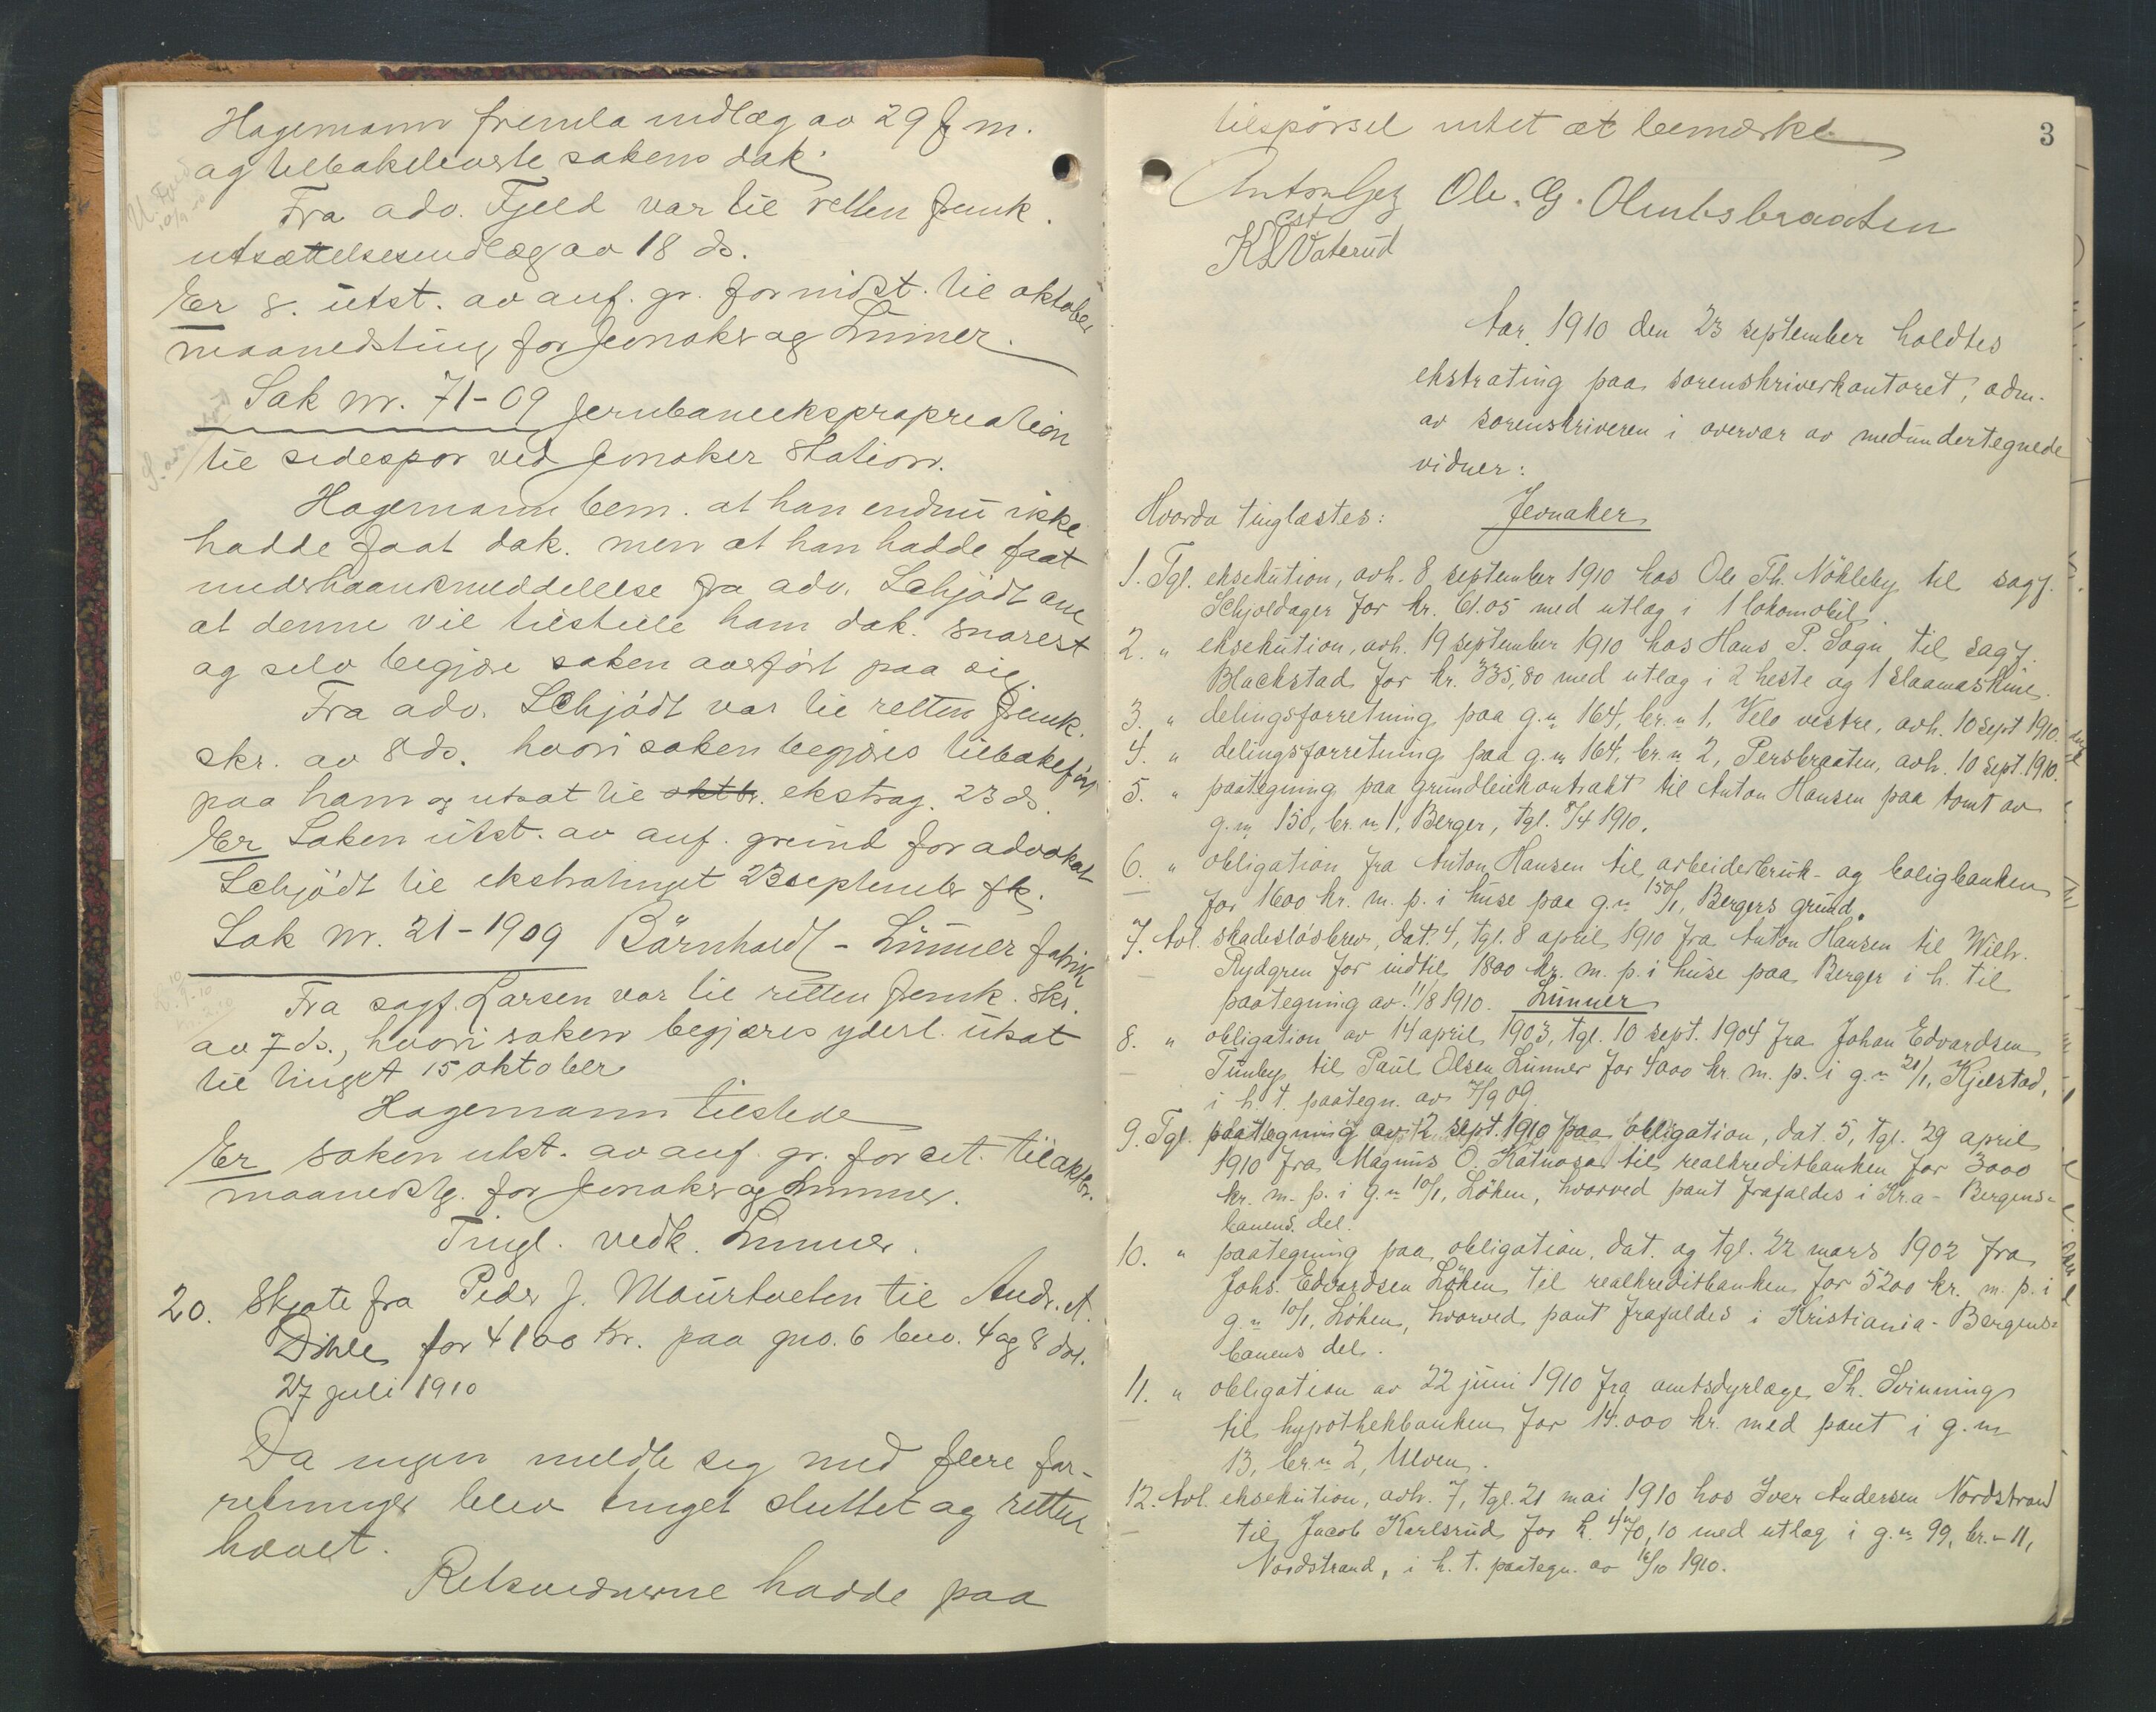 Hagemann fremla indlæg av 29 f. m.
og tilbakeleverte sakens dok.
Fra adv. Fjeld var til retten fremk.
utsættelsesindlæg av 18 ds.
Er s. utst. av anf. gr. for indst. til oktober
maanedsting for Jevnaker og Lunner.
Sak nr. 71-09 Jernbaneekspropriation
til sidespor ved Jevnaker Station.
Hagemann bem. at han endnu ikke
hadde faat dok. men at han hadde faat
underhaandsmeddelelse fra adv. Schjödt om
at denne vil tilstille ham dok. snarest
og selv begjære saken overfört paa sig.
Fra adv. Schjödt var til retten fremk.
skr. av 8 ds. hvori saken begjæres tilbakefört
paa ham og utsat til oktbr. ekstrag. 23 ds.
Er Saken utst. av anf. grund for advokat
Schjödt til ekstratinget 23 september fk.
Sak nr. 21-1909 Börnholdt - Lunner fabrik
Fra sagf. Larsen var til retten fremk. skr.
av 7 ds., hvori saken begjæres yderl. utsat
til tinget 15 oktober
Hagemann tilstede
Er saken utst. av anf. gr. for cit. til oktbr.
maanedstg. for Jevnaker og Lunner.
Tingl. vedk. Lunner.
20. Skjøte fra Peder J. Maurtveten til Andr. A.
Dihle for 4100 Kr. paa gno. 6 bno. 4 og 8 dat.
27 juli 1910
Da ingen meldte sig med flere for-
retninger blev tinget sluttet og retten
hævet.
Retsvidnerne hadde paa
3
tilspörsel intet at bemærke
Ole. G. Olimbsbraaten
K L Vaterud
Aar 1910 den 23 september holdtes
ekstrating paa sorenskriverkontoret, adm.
av sorenskriveren i overvær av medundertegnede
vidner:
Hvorda tinglæstes: Jevnaker
1. Tgl. eksekution, avh. 8 september 1910 hos Ole Th. Nökleby til sagf.
Schjoldager for kr. 61.05 med utlæg i 1 lokomobil.
2. " eksekution, avh. 19 september 1910 hos Hans P. Sogn til sagf.
Blackstad for kr. 335,80 med utlæg i 2 heste og 1 slaamaskine.
3. " delingsforretning paa g.n. 164, br.n. 1, Velo vestre, avh. 10 sept 1910.
4. " delingsforretning paa g.n. 164, br.n. 2, Persbraaten, avh. 10 sept. 1910.
5. " paategning paa grundleiekontrakt til Anton Hansen paa tomt av
g.n. 150, br.n. 1, Berger, tgl. 8/4 1910.
6. " obligation fra Anton Hansen til arbeiderbruk- og boligbanken
for 1600 kr. m. p. i huse paa g.n. 150/1, Bergers grund.
7. Avl. skadeslösbrev, dat. 4, tgl. 8 april 1910 fra Anton Hansen til Wilh.
Rydgren for indtil 1800 kr. m. p. i huse paa Berger i h. til
paategning av 11/8 1910. Lunner
8. " obligation av 14 april 1903, tgl. 10 sept. 1904 fra Johan Edvardsen
Tunby til Paul Olsen Lunner for 4000 kr. m. p. i g.n. 21/1, Kjelstad,
i h. t. paategn. av 7/9 09.
9. Tgl. paategning av 2 sept. 1910 paa obligation, dat. 5, tgl. 29 april
1910 fra Magnus O. Katnosa til realkreditbanken for 3000
kr. m. p. i g.n. 10/1, Löken, hvorved pant frafaldes i Kr.a - Bergens-
banens del.
10. " paategning paa obligation, dat. og tgl. 22 mars 1902 fra
Johs. Edvardsen Löken til realkreditbanken for 5200 kr. m. p. i
g.n. 10/1, Löken, hvorved pant frafaldes i Kristiania - Bergens-
banens del.
11. " obligation av 22 juni 1910 fra amtsdyrlæge Th. Svinning
til hypothekbanken for 14.000 kr. med pant i g.n.
13, br.n. 2, Ulven.
12. Avl. eksekution, avh. 7, tgl. 21 mai 1910 hos Iver Andersen Nordstrand
til Jacob Karlsrud for k. 470,10 med utlæg i g.n. 99, br.n. 11,
Nordstrand, i h. t. paategn. av 16/10 1910.